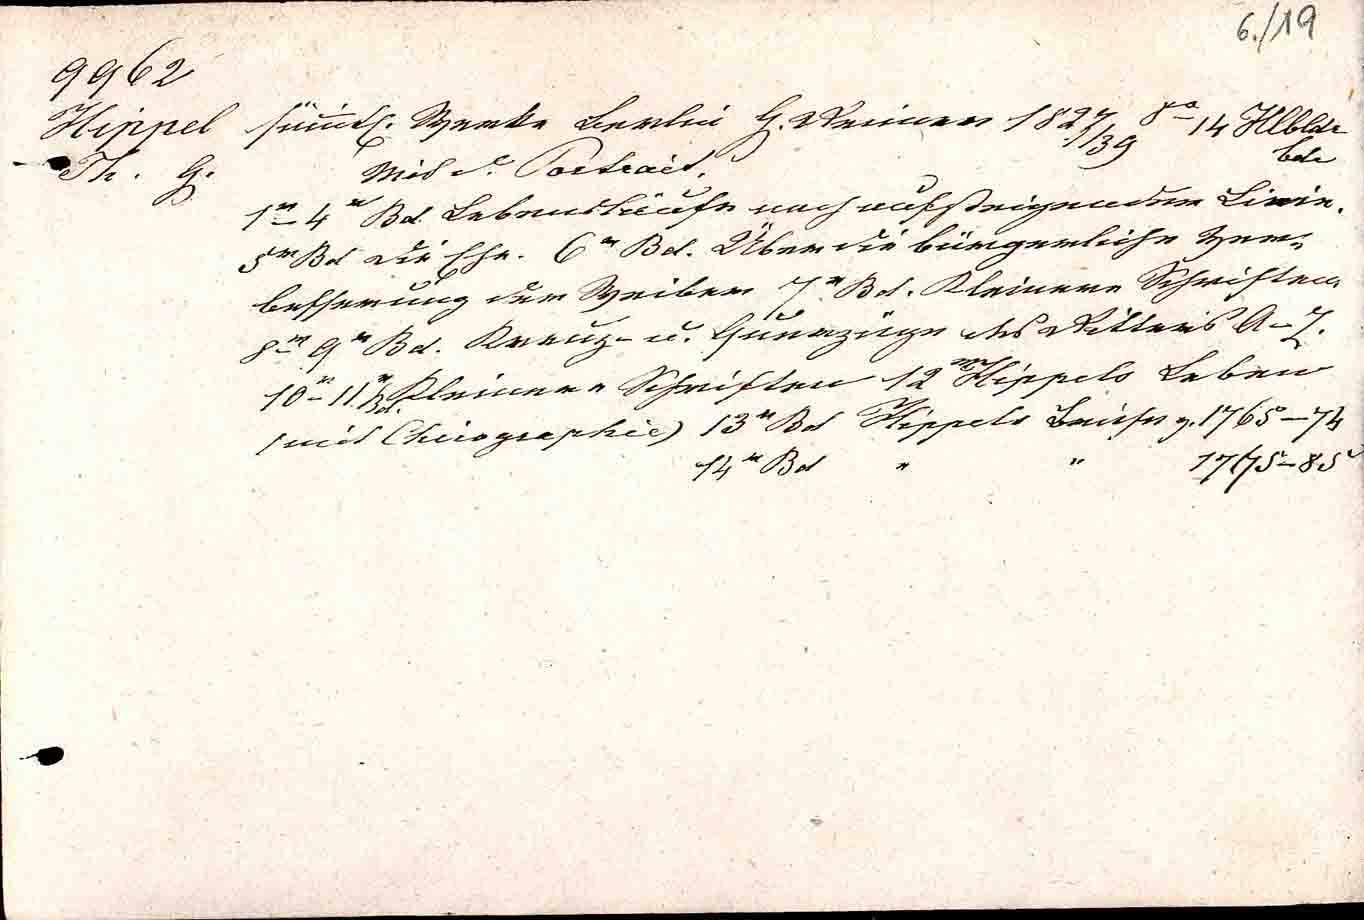 6./19
9962
Hippel sämtl. Werke Berlin G. Reimer 1827/39 8° 14 Hlbldr
Th. G. Mit d. Portrait. bde
1r–4r Bd. Lebensläufe nach aufsteigender Linie.
5r Bd die Ehe. 6r Bd. Über die bürgerliche Ver-
besserung der Weiber 7r Bd. Kleinere Schriften.
8r–9r Bd. Kreuz- u. Querzüge des Ritters A–Z.
10r–11r Bd. Kleinere Schriften 12r Hippels Leben
(mit Chirographie) 13r Bd Hippels Briefe v. 1765–74
14r Bd " " 1775–85